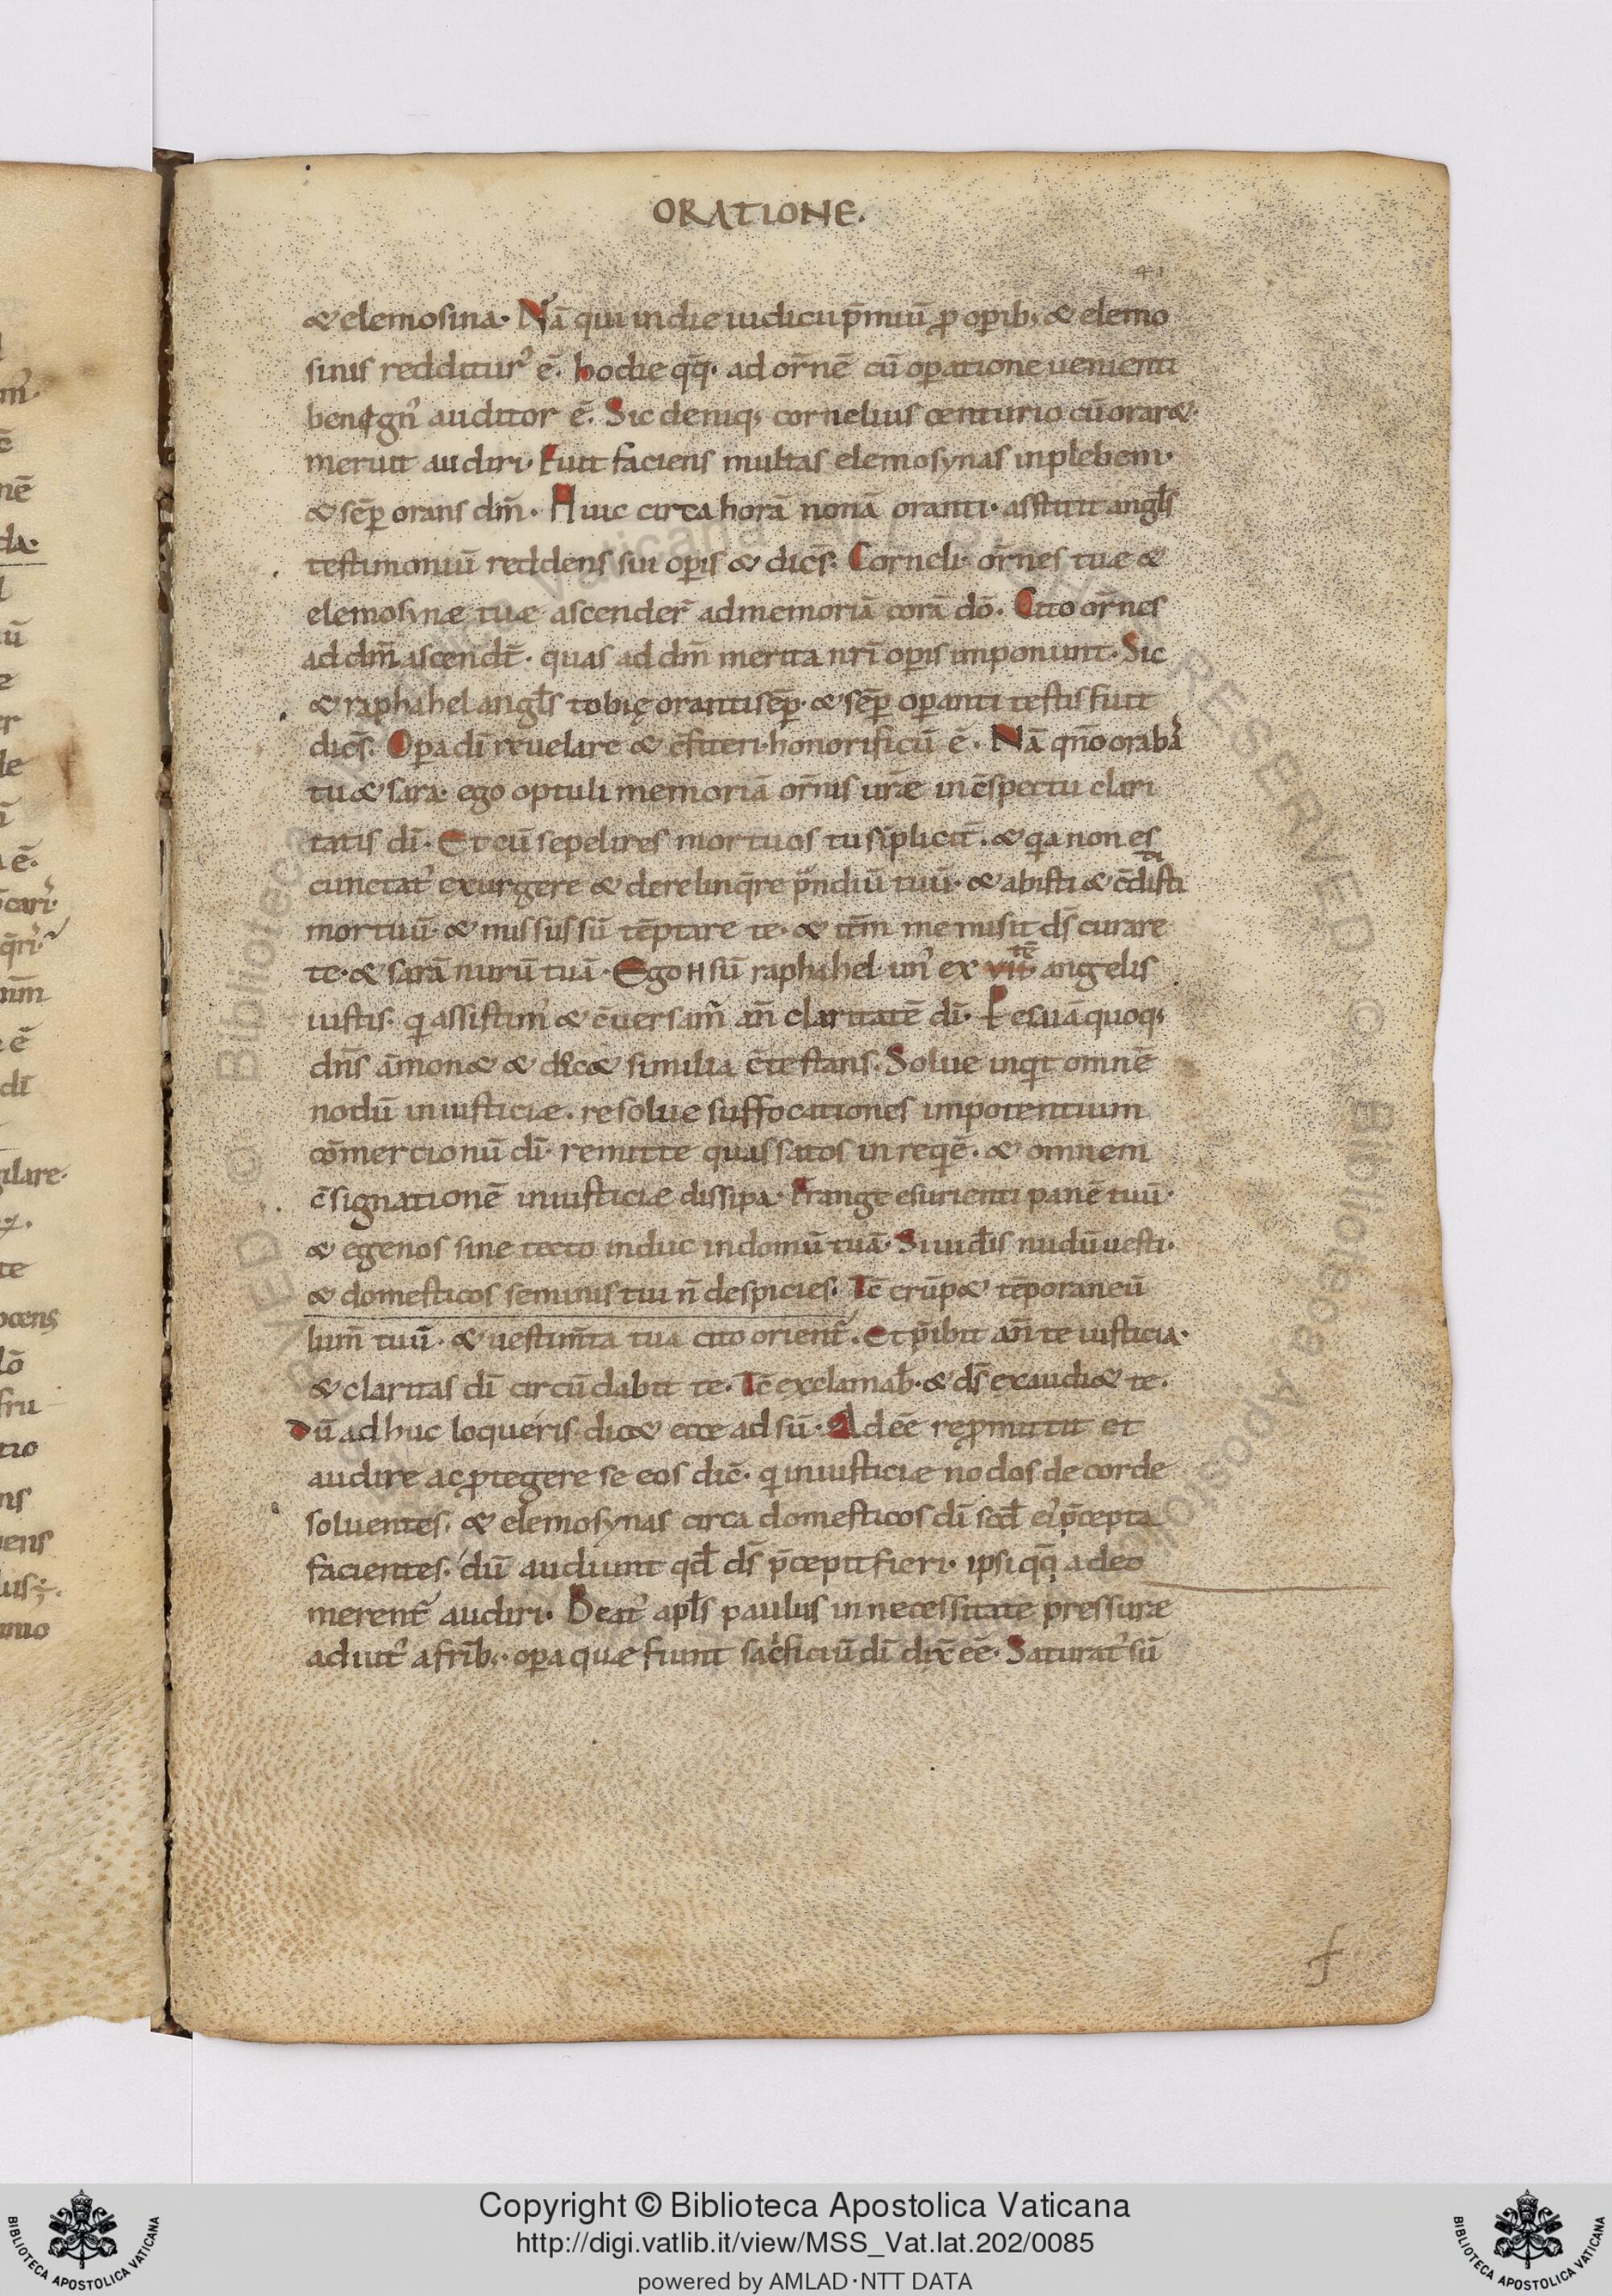 ORATIONE.
41
& elemosina. Nā qui in die iudicii p̄miū ꝓ opib; & elemo
sinis redditur᾽ ē. hodie qq̄. ad or̄nē cū opatione uenienti
benign᾽ auditor ē. Sic deniq; cornelius centurio cū orar&.
meruit audiri. Fuit faciens multas elemosynas in plebem.
& sēp orans dm̄. Huic circa horā nonā oranti. asstitit angl̄s
testimoniū reddens sui opis & dicēs. Corneli. or̄nes tuæ &
elemosynæ tuæ ascender̄ ad memoriā corā dō. Cito or̄nes
ad dm̄ ascendt̄. quas ad dm̄ merita nr̄i opis imponunt. Sic
& raphahel angl̄s tobię oranti sēp. & sēp opanti testis fuit
dicēs. Opa dī reuelare & c̄fiteri. honorificū ē. Nā qn̄o orabā
tu & sara. ego optuli memoriā or̄nis ur̄æ in c̄spectu clari
tatis dī. Et cū sepelires mortuos tu sīplicit̄. & qa non es
cunctat᾽ exurgere & derelinq̄re pndiū tuū. & abisti & c̄disti
di
mortuū. & missus sū tēptare te. & itm̄ me misit ds̄ curare
te. & sarā nurū tuā. Ego H sū raphahel. un᾽ ex vii. angelis
tē
iustis. q assistim᾽ & c̄uersam̄ an̄ claritatē dī. P esaiā quoq;
dns̄ āmon& & doc& similia c̄testans. Solue inqt omnē
nodū iniusticiæ. resolue suffocationes impotentium
cōmercionū dī. remitte quassatos in reqē. & omnem
c̄signationē iniusticiæ dissipa. Frange esurienti panē tuū.
& egenos sine tecto induc in domū tuā. Si uid̄is nudū uesti.
& domesticos seminis tui n̄ despicies. Tc̄ erūp& tēporaneū
lum̄ tuū. & uestim̄ta tua cito orient᾽. Et p̄ibit an̄ te iusticia.
& claritas dī circūdabit te. Tc̄ exclamab̄. & ds̄ exaudi& te.
Dū adhuc loqueris. dic& ecce adsū. Adeē repmittit et
audire ac ptegere se eos dic̄. q iniusticiæ nodos de corde
soluentes. & elemosynas circa domesticos dī scd̄ ei᾽ p̄cepta
facientes. dū audiunt qd̄ ds̄ p̄cepit fieri. ipsi qq̄ a deo
merent᾽ audiri. Beat᾽ apl̄s paulus in necessitate pressuræ
adiut᾽ a frib;. opa quæ fiunt sacficiū dī dix̄ eē. Saturat᾽ sū
f
Copyright © Biblioteca Apostolica Vaticana
http://digi.vatlib.it/view/MSS_Vat.lat.202/0085
powered by AMLAD·NTT DATA
BIBLIOTECA APOSTOLICA VATICANA
BIBLIOTECA APOSTOLICA VATICANA